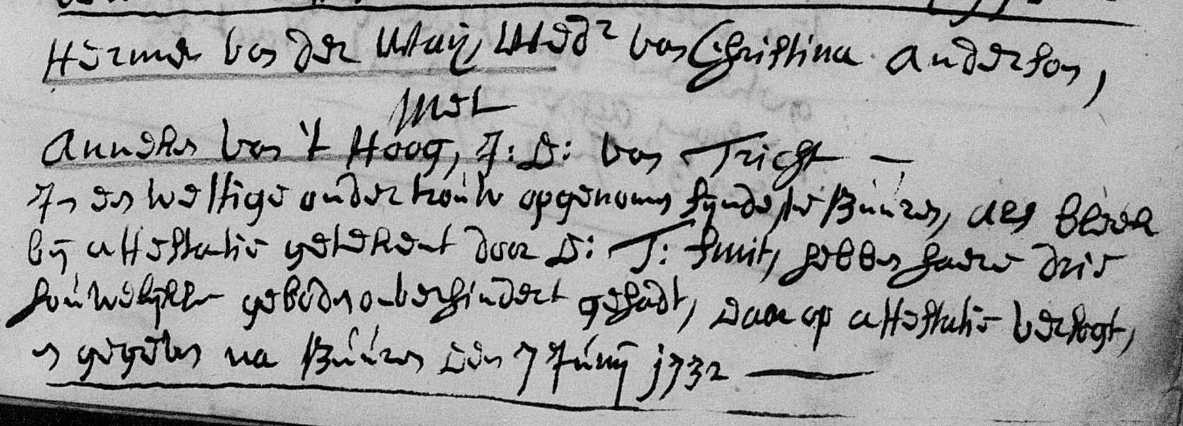 Hermen van der Maij, Wed.r van Christina Anderson,
met
Anneke van 't Hoog, J: D: van Tricht —,
In den wettige ondertrouw opgenomen synde, te Büüren, als bleek
by attestatie getekent door D: T: Smit, hebben haere drie
houwelyksse geboden onverhindert gehadt, daar op attestatie versogt,
en gegeven na Büüren den 7 Juny 1732 —